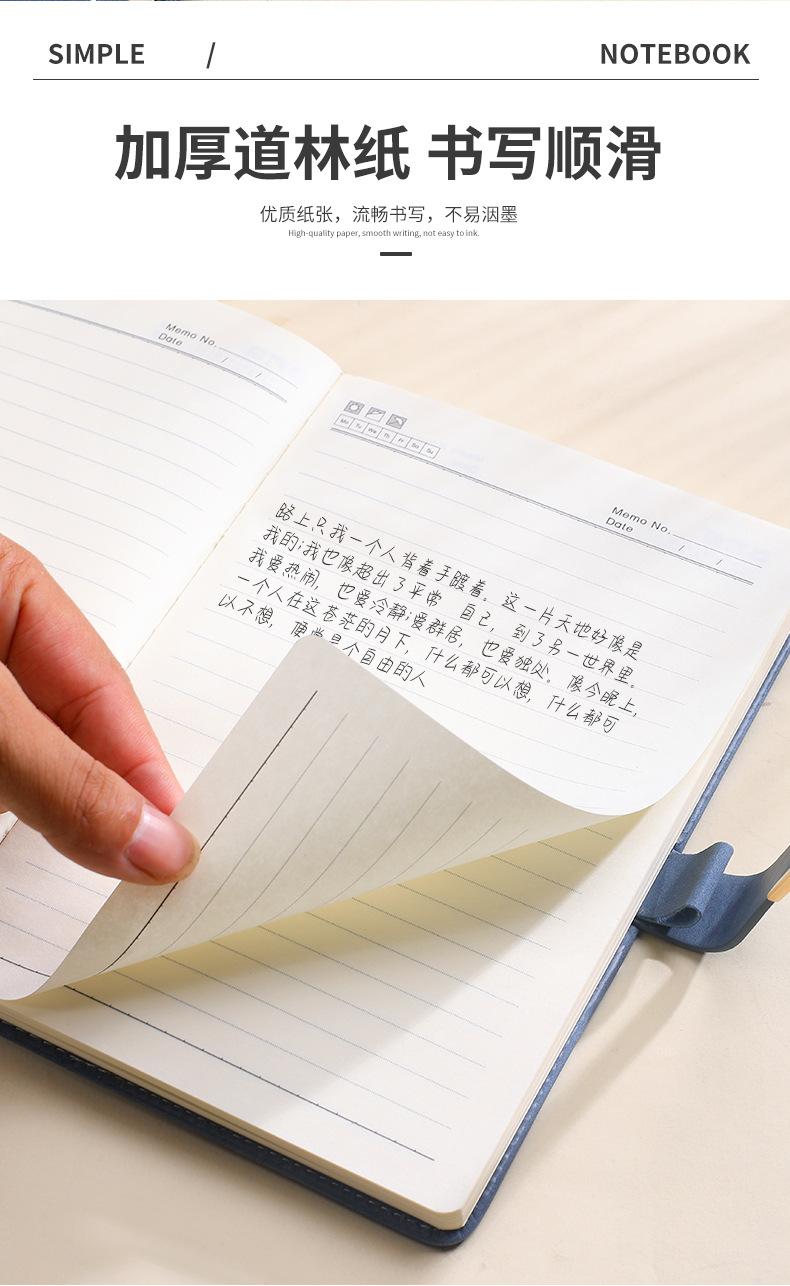 SIMPLE / NOTEBOOK
加厚道林纸 书写顺滑
优质纸张，流畅书写，不易洇墨
High-quality paper, smooth writing, not easy to ink.
Memo No.
Date / /
Mo Tu We Th Fr Sa Su
Memo No.
Date / /
路上只我一个人背着手踱着。这一片天地好像是
我的;我也像超出了平常 自己，到了另一世界里。
我爱热闹，也爱冷静;爱群居，也爱独处。像今晚上，
一个人在这苍茫的月下，什么都可以想，什么都可
以不想，便觉是个自由的人